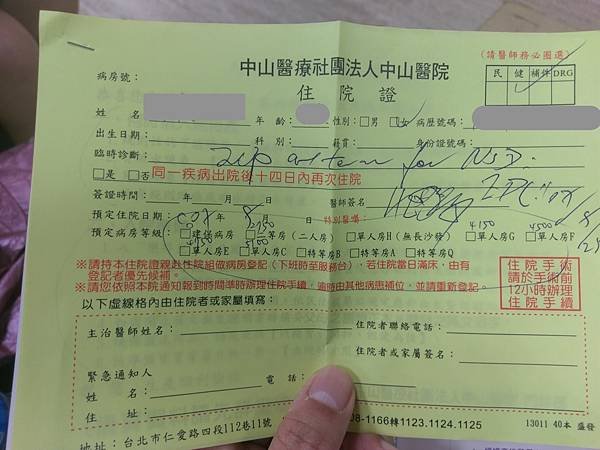 (請醫師務必圈選)
中山醫療社團法人中山醫院
民 健 補件 DRG
住院證
病房號：
姓名 年齡： 性別：□男 □女 病歷號碼：
出生日期： 科別： 籍貫： 身份證號碼：
臨時診斷： for NSD.
□是 □否 同一疾病出院後十四日內再次住院
簽證時間： 年 月 日 醫師簽名
預定住院日期： 年 月 日 特別醫囑：
預定病房等級：□健保病房 □二等房（二人房） □單人房H（無長沙發） □單人房G □單人房F
4150 4500
□單人房E □單人房C □特等房B □特等房A □特等房Q
※請持本住院證親赴住院組做病房登記（下班時至服務台），若住院當日滿床，由有
登記者優先候補。
※請您依照本院通知報到時間準時辦理住院手續，逾時由其他病患補位，並請重新登記。
住院手術
請於手術前
12小時辦理
住院手續
以下虛線格內由住院者或家屬填寫：
主治醫師姓名： 住院者聯絡電話：
住院者或家屬簽名：
緊急通知人
姓名： 電話：
住址：
地址：台北市仁愛路四段112巷11號 08-1166轉1123.1124.1125
13011 40本 盛發